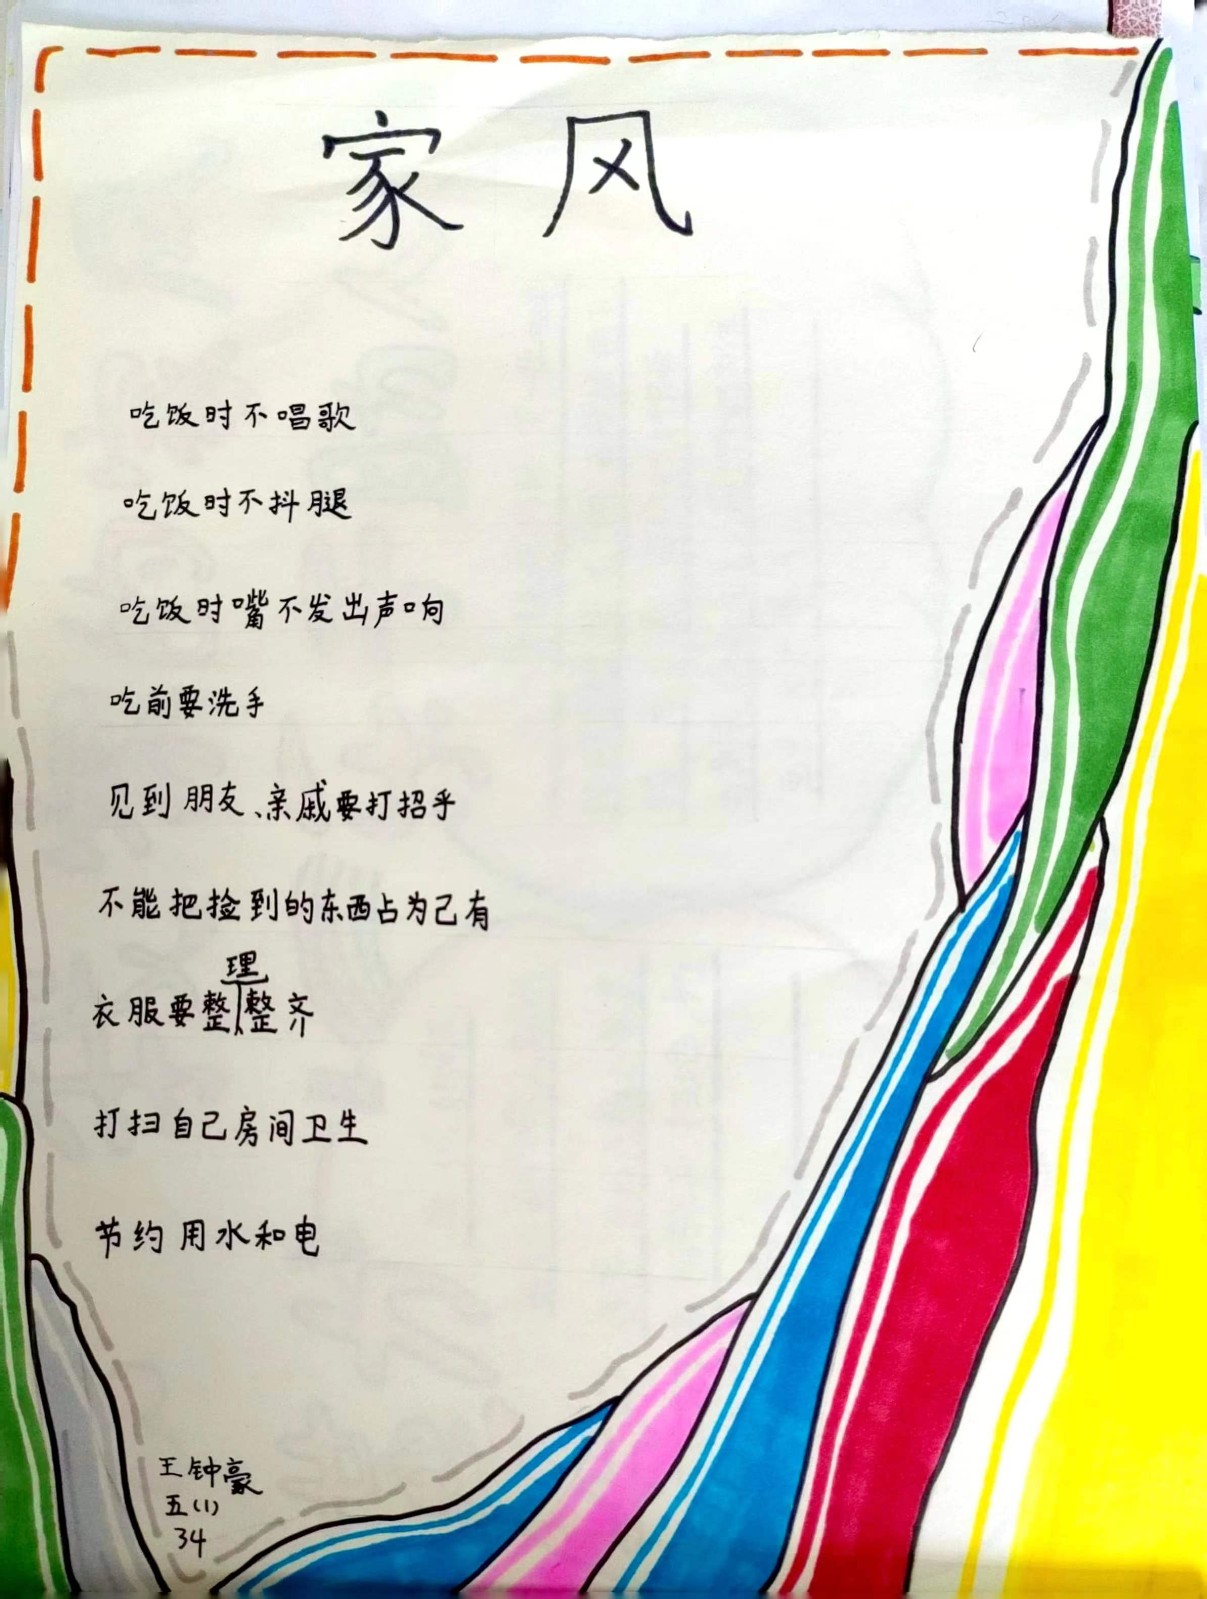 家风
吃饭时不唱歌
吃饭时不抖腿
吃饭时嘴不发出声响
吃前要洗手
见到朋友、亲戚要打招乎
不能把捡到的东西占为己有
衣服要整理整齐
打扫自己房间卫生
节约用水和电
王钟豪
五(1)
34